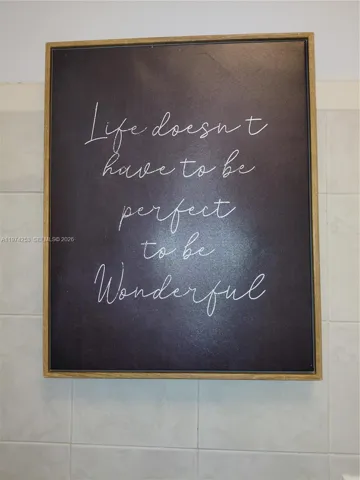 Life doesn t
have to be
perfect
to be
Wonderful